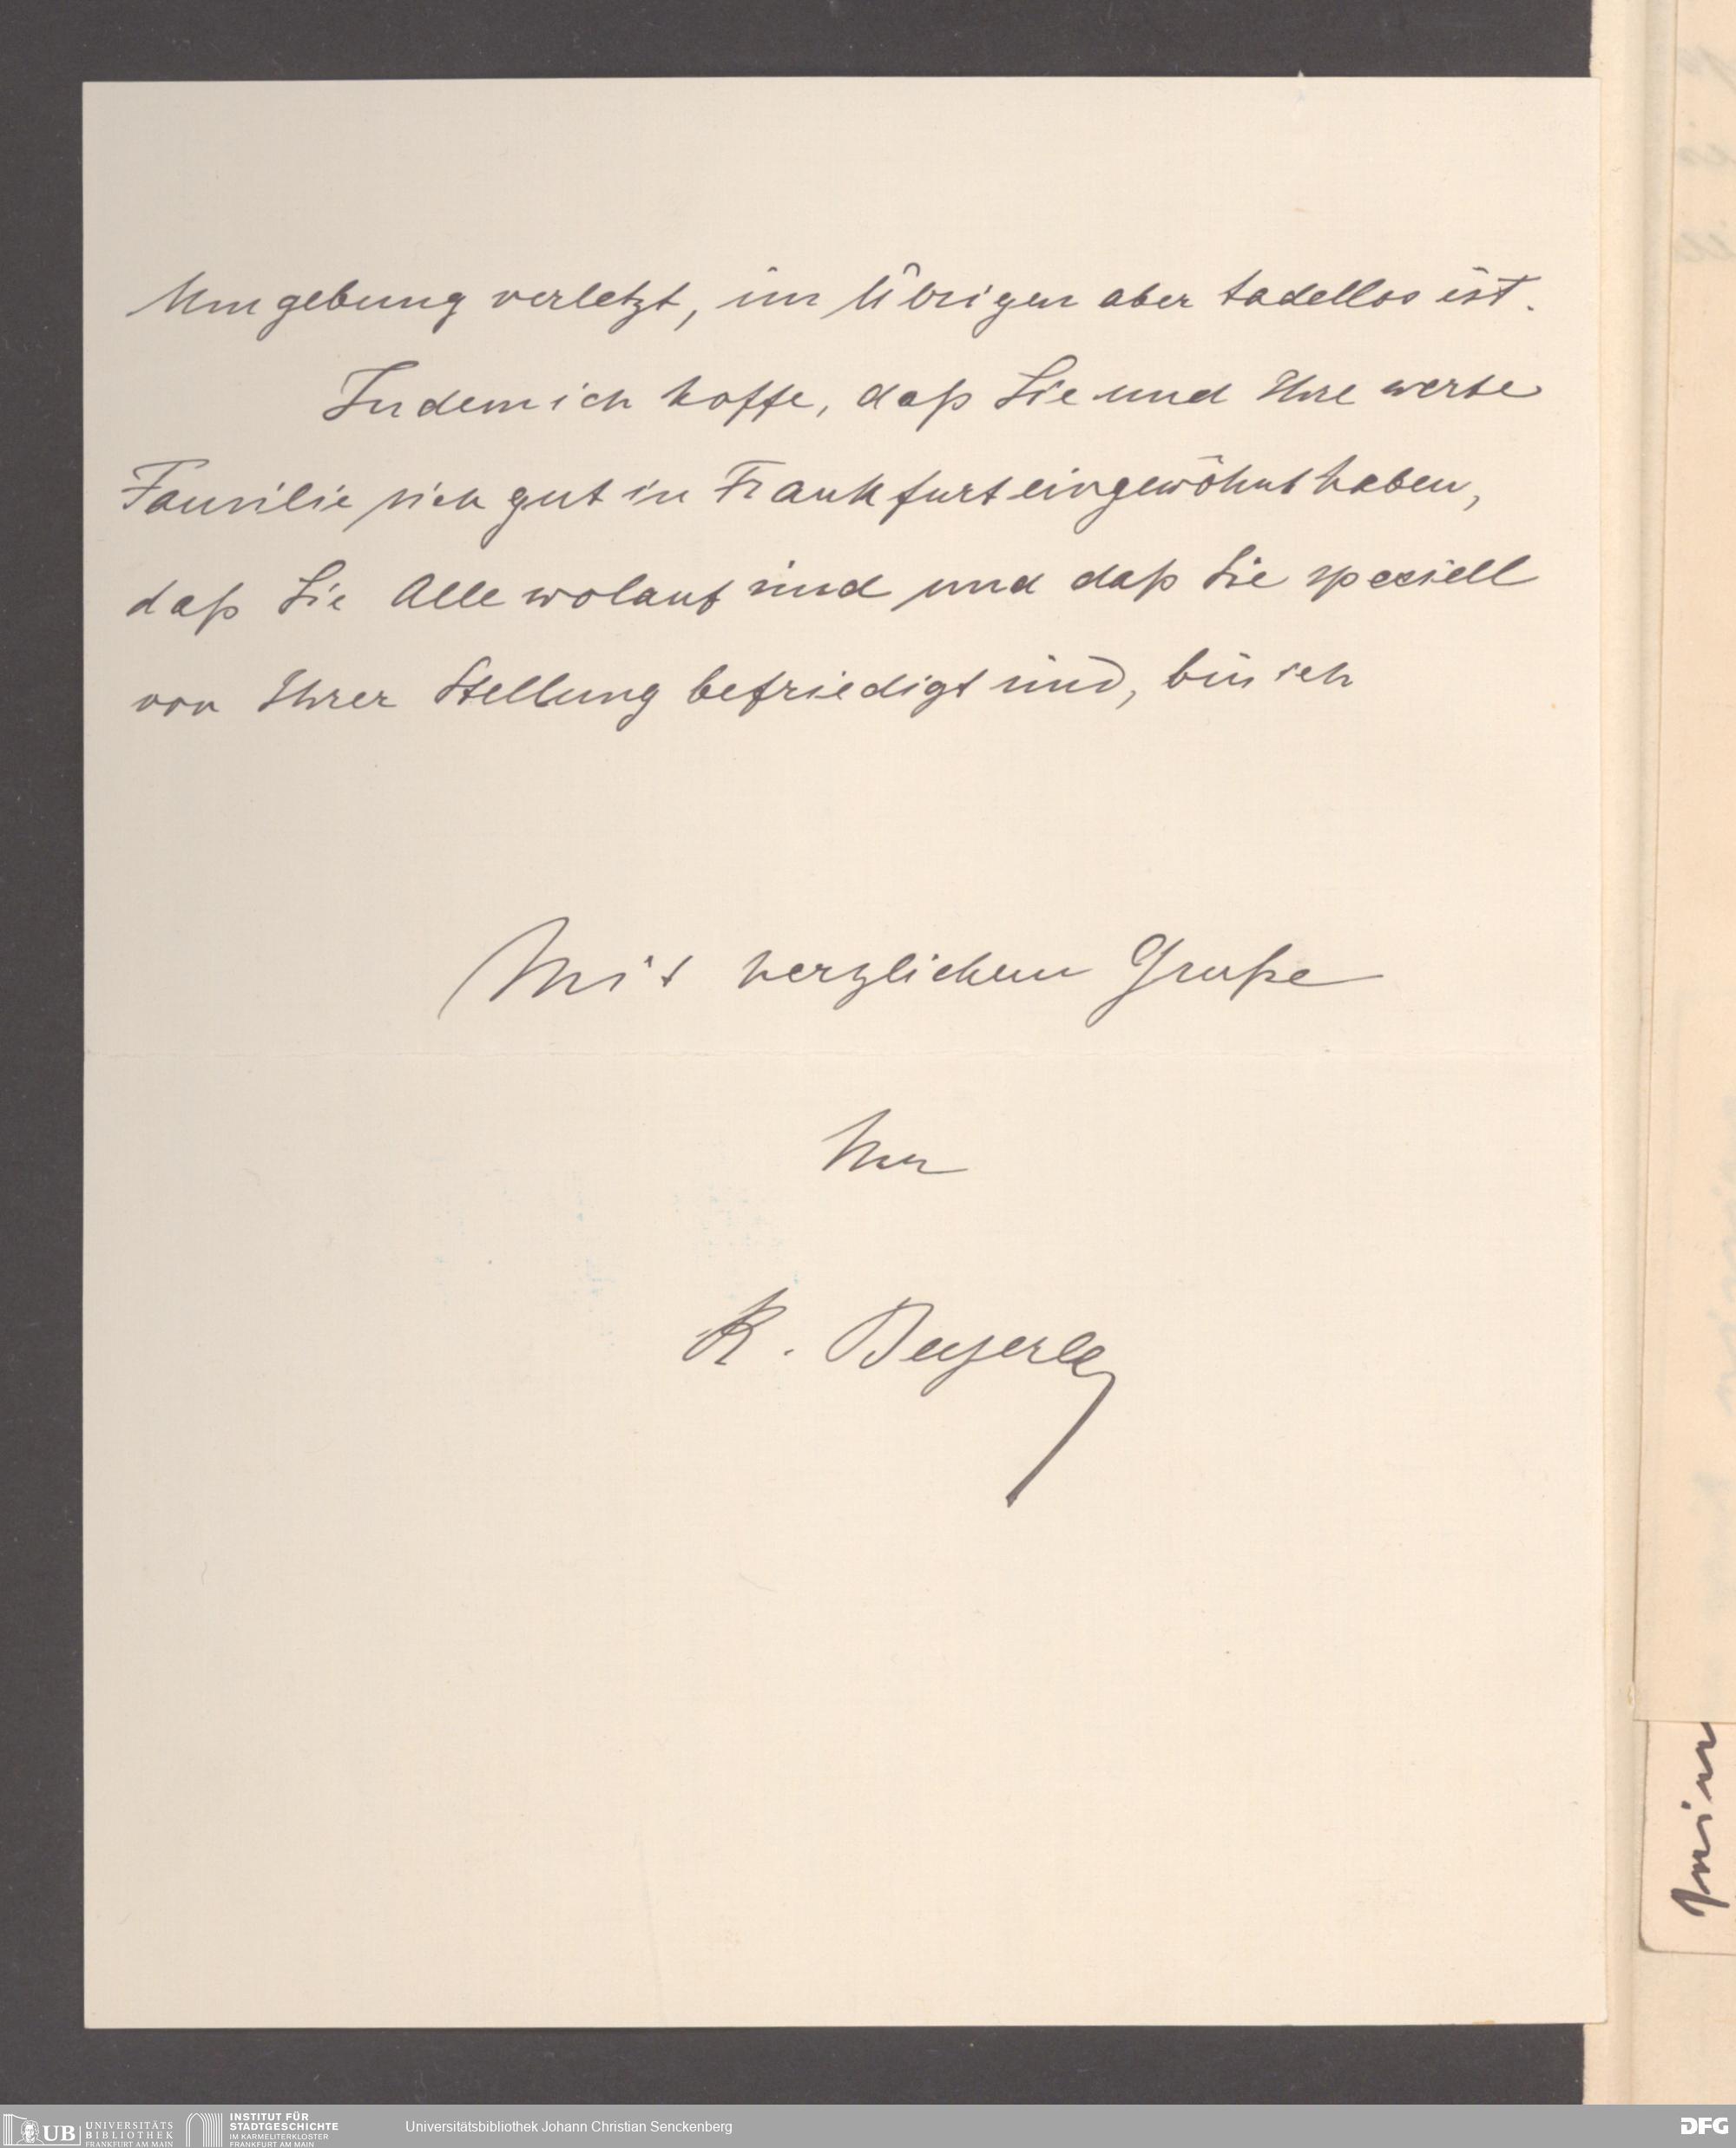 Umgebung verletzt, im Übrigen aber tadellos ist.
Indem ich hoffe, daß Sie und Ihre werte
Familie sich gut in Frankfurt eingewöhnt haben,
daß Sie Alle wolauf sind und daß Sie speciell
von Ihrer Stellung befriedigt sind, bin ich
Mit herzlichem Gruße
Ihr
K. Beyerle
UB UNIVERSITÄTS
BIBLIOTHEK
FRANKFURT AM MAIN
INSTITUT FÜR
STADTGESCHICHTE
IM KARMELITERKLOSTER
FRANKFURT AM MAIN
Universitätsbibliothek Johann Christian Senckenberg
DFG